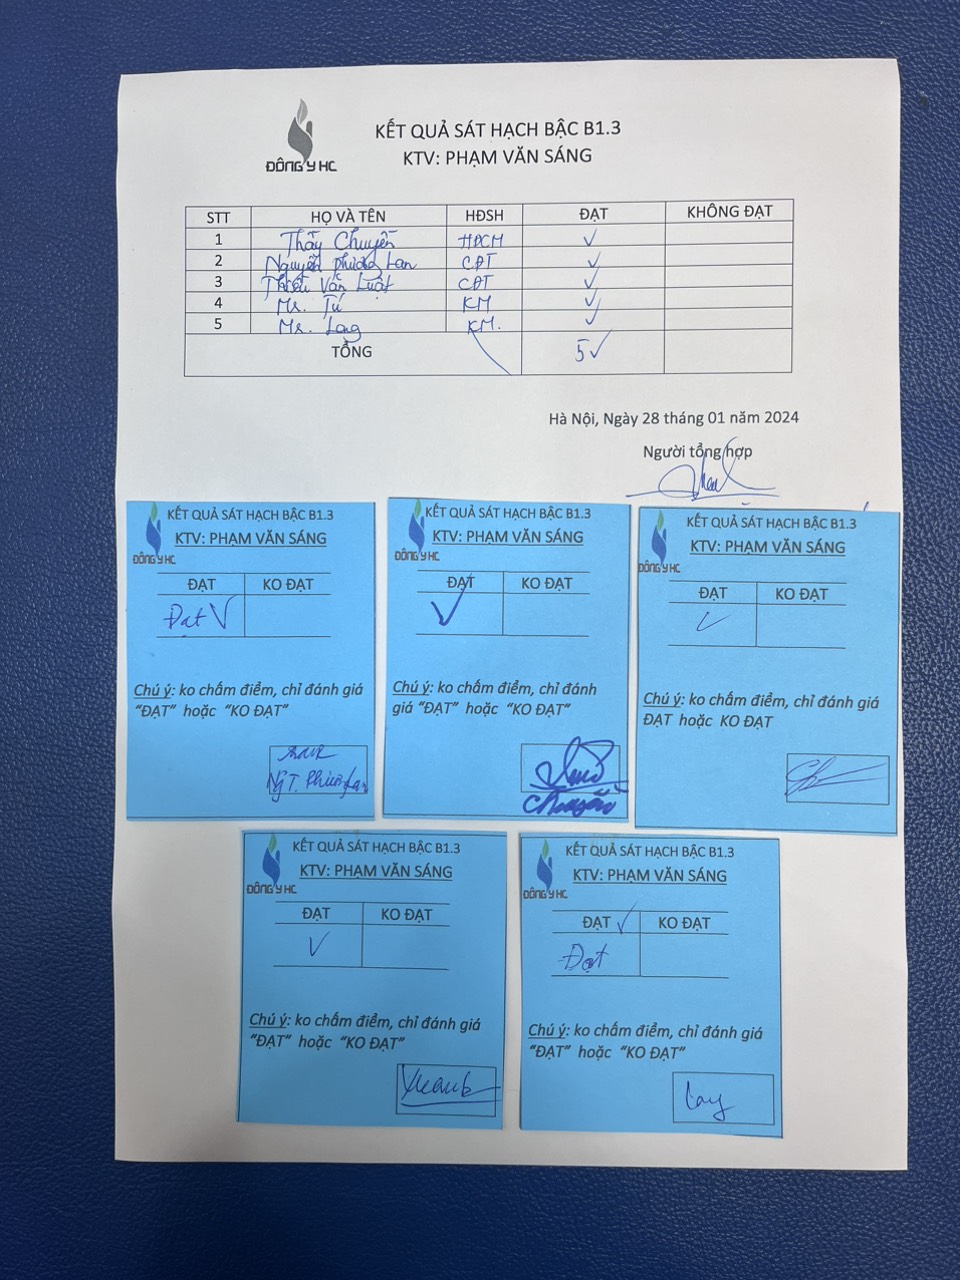 ĐÔNG Y HC
KẾT QUẢ SÁT HẠCH BẬC B1.3
KTV: PHẠM VĂN SÁNG
STT HỌ VÀ TÊN HĐSH ĐẠT KHÔNG ĐẠT
1 Thầy Chuyền HĐCM ✓
2 Nguyễn Phương Lan CĐT ✓
3 Thiều Văn Luật CĐT ✓
4 Mr. Tú KM ✓
5 Mr. Long KM. ✓
TỔNG 5 ✓
Hà Nội, Ngày 28 tháng 01 năm 2024
Người tổng hợp
KẾT QUẢ SÁT HẠCH BẬC B1.3
KTV: PHẠM VĂN SÁNG
ĐÔNG Y HC
ĐẠT KO ĐẠT
Đạt ✓
Chú ý: ko chấm điểm, chỉ đánh giá
"ĐẠT" hoặc "KO ĐẠT"
Ng T. Phương Lan
KẾT QUẢ SÁT HẠCH BẬC B1.3
KTV: PHẠM VĂN SÁNG
ĐÔNG Y HC
ĐẠT KO ĐẠT
✓
Chú ý: ko chấm điểm, chỉ đánh
giá "ĐẠT" hoặc "KO ĐẠT"
KẾT QUẢ SÁT HẠCH BẬC B1.3
KTV: PHẠM VĂN SÁNG
ĐÔNG Y HC
ĐẠT KO ĐẠT
✓
Chú ý: ko chấm điểm, chỉ đánh giá
ĐẠT hoặc KO ĐẠT
KẾT QUẢ SÁT HẠCH BẬC B1.3
KTV: PHẠM VĂN SÁNG
ĐÔNG Y HC
ĐẠT KO ĐẠT
✓
Chú ý: ko chấm điểm, chỉ đánh giá
"ĐẠT" hoặc "KO ĐẠT"
KẾT QUẢ SÁT HẠCH BẬC B1.3
KTV: PHẠM VĂN SÁNG
ĐÔNG Y HC
ĐẠT ✓ KO ĐẠT
Đạt
Chú ý: ko chấm điểm, chỉ đánh giá
"ĐẠT" hoặc "KO ĐẠT"
Long